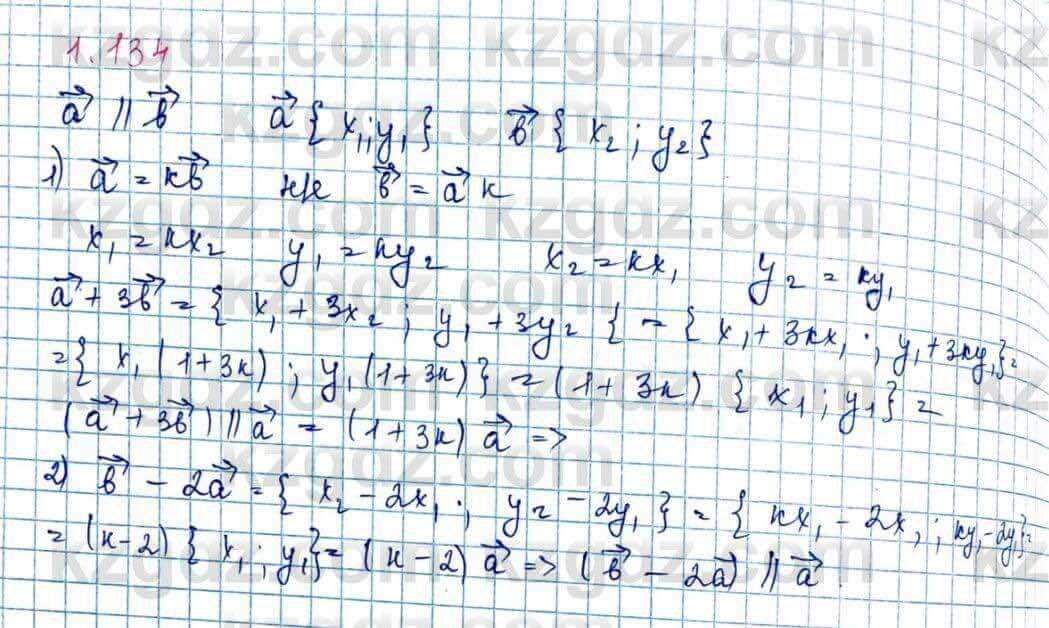 1.134
a⃗ || b⃗   a⃗ {x₁; y₁}   b⃗ {x₂; y₂}
1) a⃗ = кb⃗   b⃗ = a⃗ к
x₁ = кx₂   y₁ = кy₂   x₂ = кx₁   y₂ = кy₁
a⃗ + 3b⃗ = { x₁ + 3x₂ ; y₁ + 3y₂ { = { x₁ + 3кx₁ ; y₁ + 3кy₁} =
= { x₁ (1 + 3к) ; y₁ (1 + 3к)} = (1 + 3к) { x₁ ; y₁} =
(a⃗ + 3b⃗) || a⃗ = (1 + 3к) a⃗ =>
2) b⃗ - 2a⃗ = { x₂ - 2x₁ ; y₂ - 2y₁ } = { кx₁ - 2x₁ ; кy₁ - 2y₁} =
= (к - 2) { x₁ ; y₁} = (к - 2) a⃗ => (b⃗ - 2a⃗) || a⃗
kzgdz.com